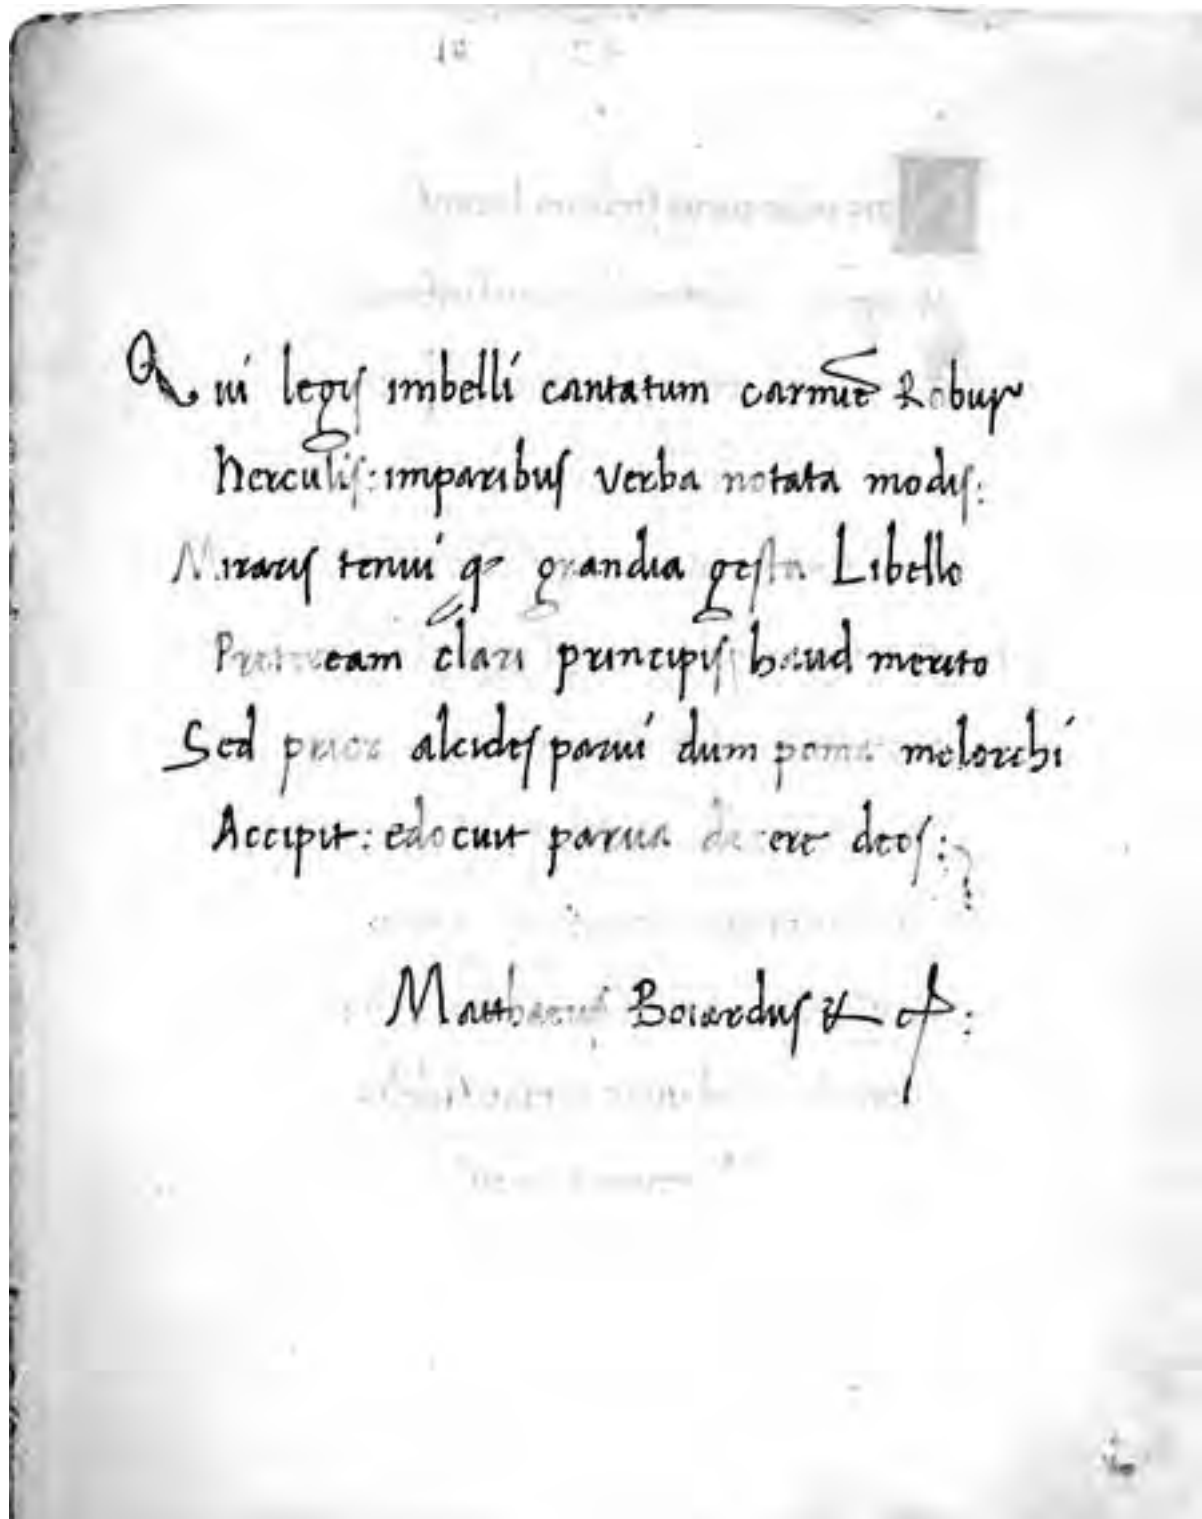 Qui legis imbelli cantatum carmine Robur
Herculis: imparibus verba notata modis:
Miraris tenui q grandia gesta Libello
Preteream clari principis haud merito
Sed prior alcides parui dum poma molorchi
Accipit: edocuit parua decere deos:
Matthaeus Boiardus &